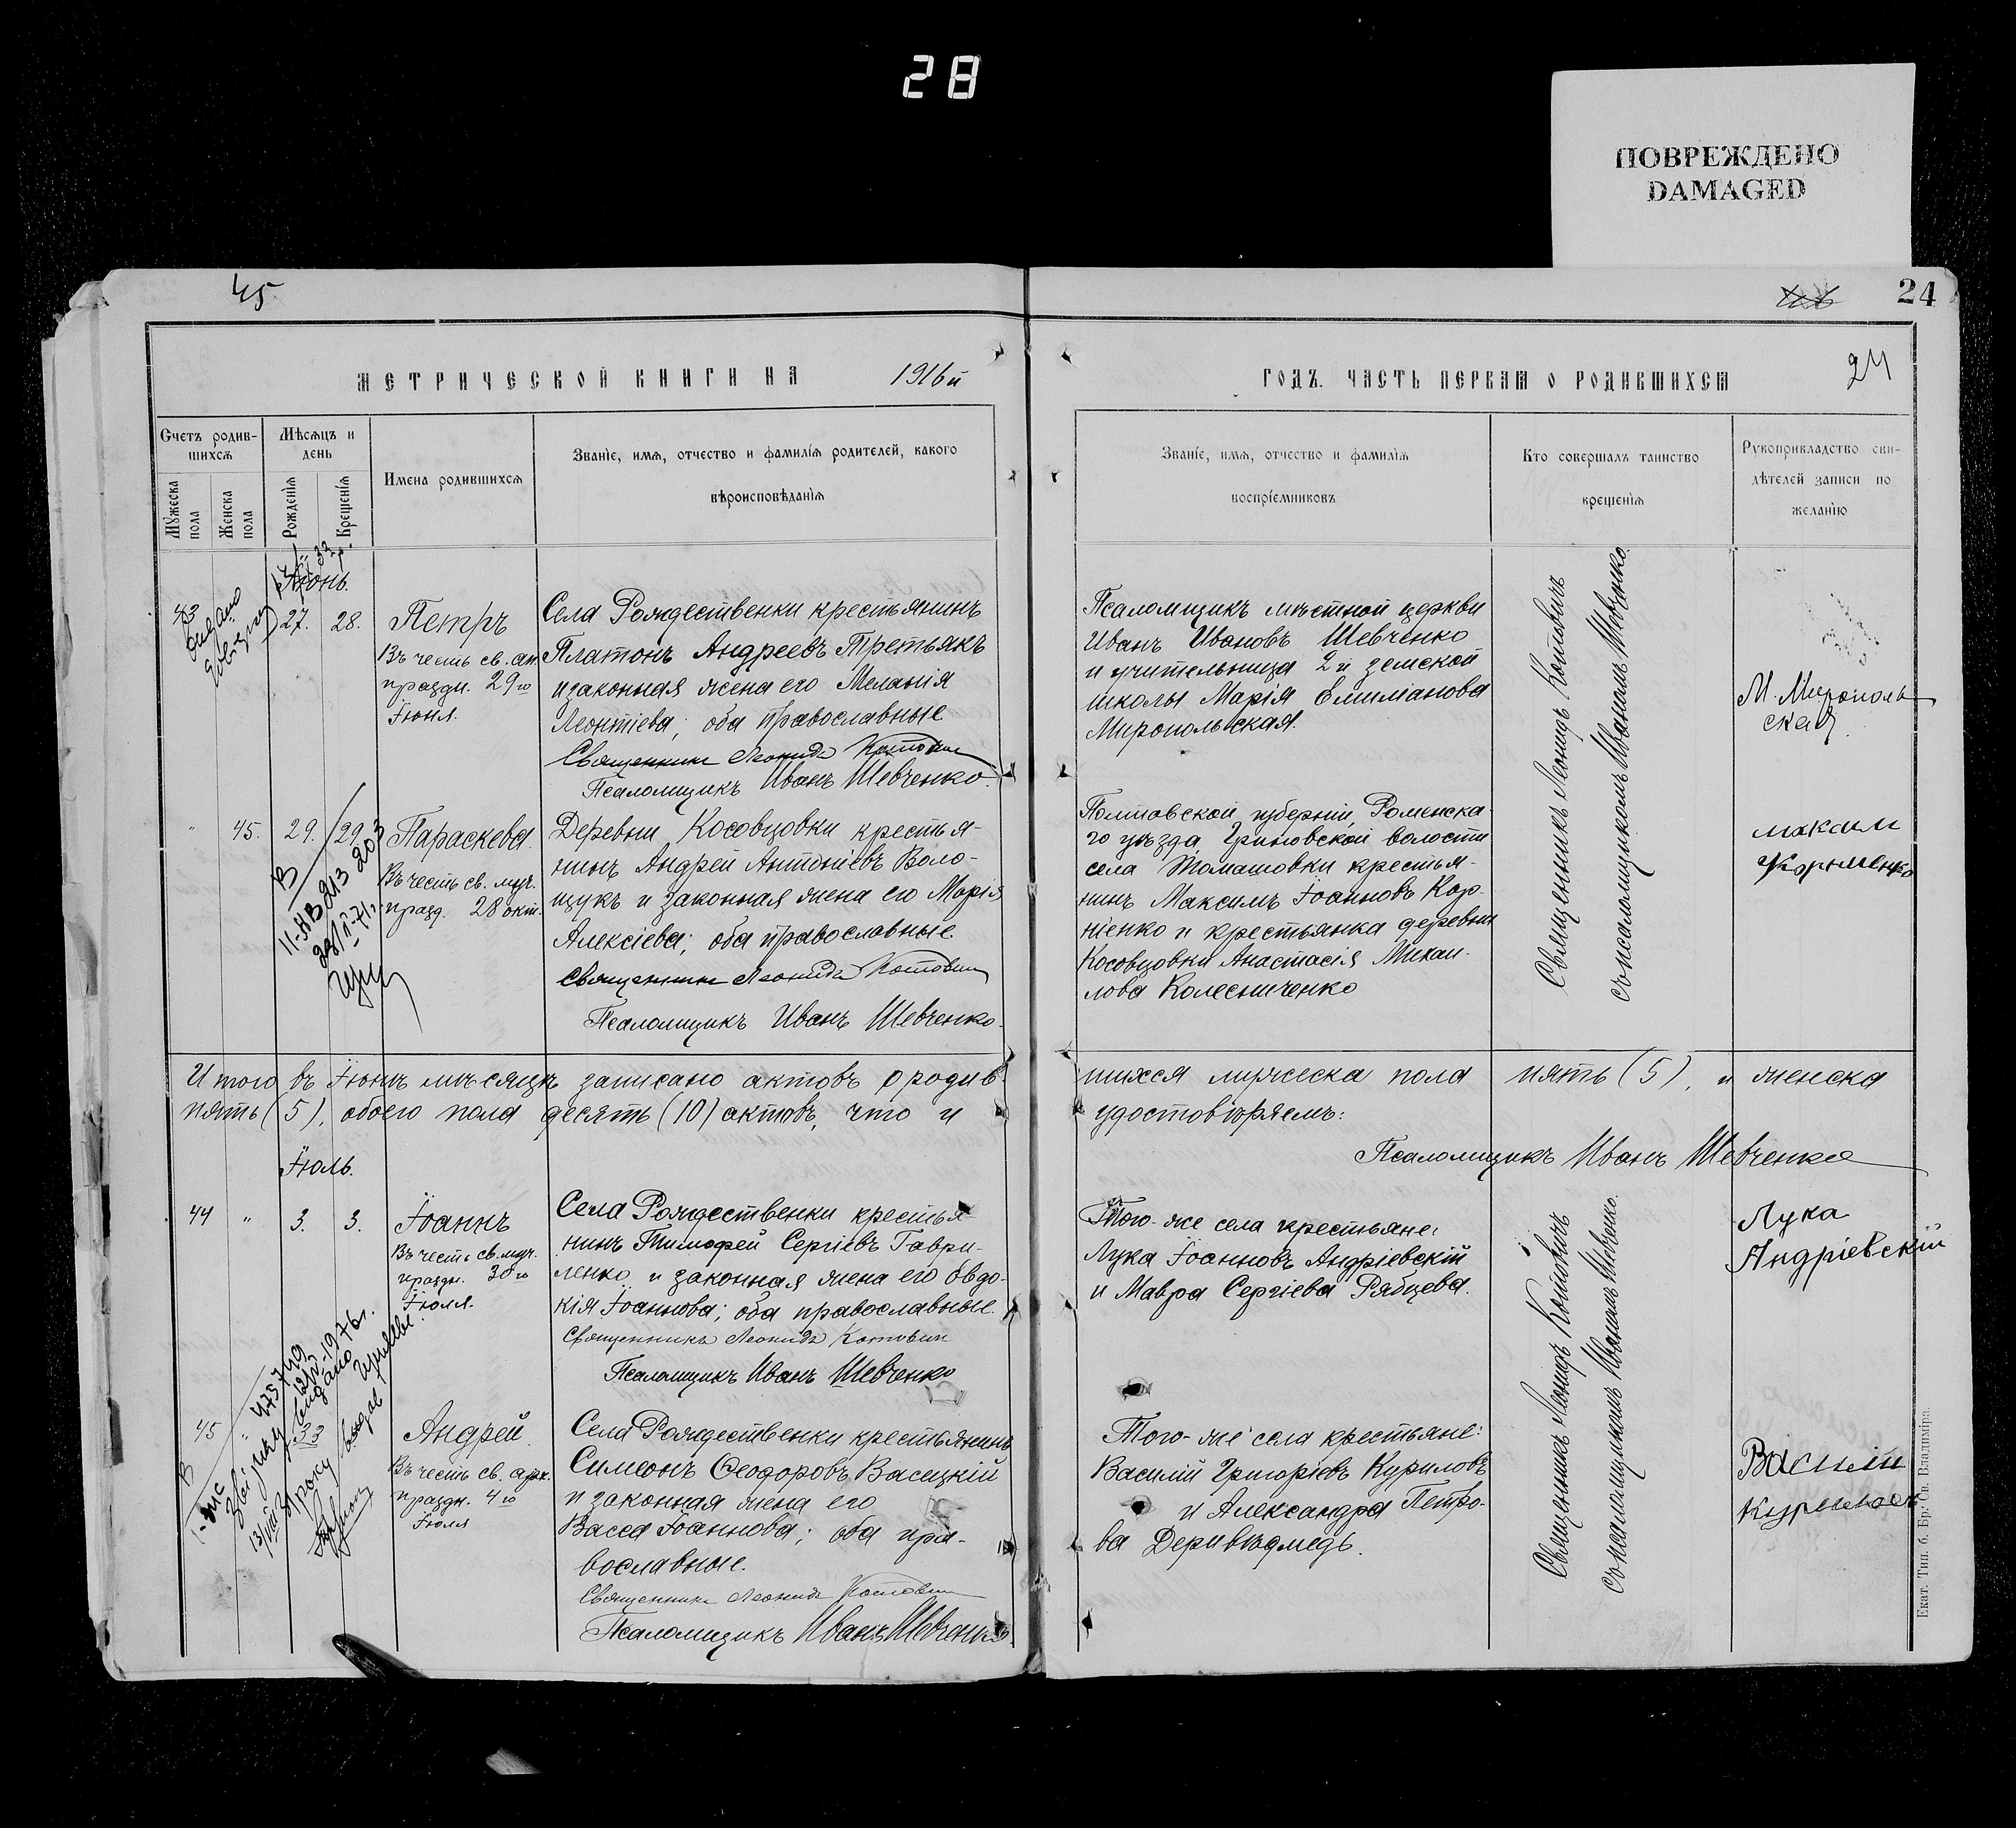 28
ПОВРЕЖДЕНО
DAMAGED
45
24
МЕТРИЧЕСКОЙ КНИГИ НА 1916й
ГОДЪ. ЧАСТЬ ПЕРВАЯ О РОДИВШИХСЯ
24
Счетъ родив-
шихся
Мѣсяцъ и
день
Имена родившихся
Званіе, имя, отчество и фамилія родителей, какого
вѣроисповѣданія
Мужеска
пола
Женска
пола
Рожденія
Крещенія
Званіе, имя, отчество и фамилія
воспріемниковъ
Кто совершалъ таинство
крещенія
Рукоприкладство сви-
дѣтелей записи по
желанію
Іюнь.
43 27. 28.
Петръ
Въ честь св. ап.
праздн. 29го
Іюня.
Села Рождественки крестьянинъ
Платонъ Андреевъ Третьякъ
и законная жена его Меланія
Леонтіева; оба православные
Священникъ Леонидъ Котовичъ
Псаломщикъ Иванъ Шевченко.
Псаломщикъ мѣстной церкви
Иванъ Ивановъ Шевченко
и учительница 2й земской
школы Марія Емиліанова
Миропольская.
Священникъ Леонидъ Котовичъ
съ псаломщикомъ Иваномъ Шевченко.
М. Мирополь
ская
" 45. 29. 29.
Параскева.
Въ честь св. муч.
празд. 28 окт.
Деревни Косовцовки крестья-
нинъ Андрей Антоніевъ Воло-
щукъ и законная жена его Марія
Алексіева; оба православные.
Священникъ Леонидъ Котовичъ
Псаломщикъ Иванъ Шевченко.
Полтавской губерніи, Роменска-
го уѣзда, Гриновской волости
села Томашовки крестья-
нинъ Максимъ Іоанновъ Кор-
ніенко и крестьянка деревни
Косовцовки Анастасія Михаи-
лова Колесниченко
максим
Корніенко
Итого въ Іюнѣ мѣсяцѣ записано актовъ о родив-
шихся мужеска пола пять (5), и женска
пять (5), обоего пола десять (10) актовъ, что и
удостовѣряемъ:
Псаломщикъ Иванъ Шевченко
Іюль.
44 " 3. 3.
Іоаннъ
Въ честь св. муч.
праздн. 30го
Іюля.
Села Рождественки крестья-
нинъ Тимофей Сергіевъ Гаври-
ленко и законная жена его Овдо-
кія Іоаннова; оба православные.
Священникъ Леонидъ Котовичъ
Псаломщикъ Иванъ Шевченко
Того-же села крестьяне:
Лука Іоанновъ Андріевскій
и Мавра Сергіева Рябцева.
Священникъ Леонидъ Котовичъ
съ псаломщикомъ Иваномъ Шевченко.
Лука
Андріевскій
45 "
Андрей.
Въ честь св.
праздн. 4го
Іюля
Села Рождественки крестьянинъ
Симеонъ Ѳеодоровъ Васицкій
и законная жена его
Васса Іоаннова; оба пра-
вославные.
Священникъ Леонидъ Котовичъ
Псаломщикъ Иванъ Шевченко
Того-же села крестьяне:
Василій Григоріевъ Куриловъ
и Александра Петро-
ва Деривѣдмедь.
Василій
Куриловъ
Екат. Тип. б. Бр. Св. Владиміра.